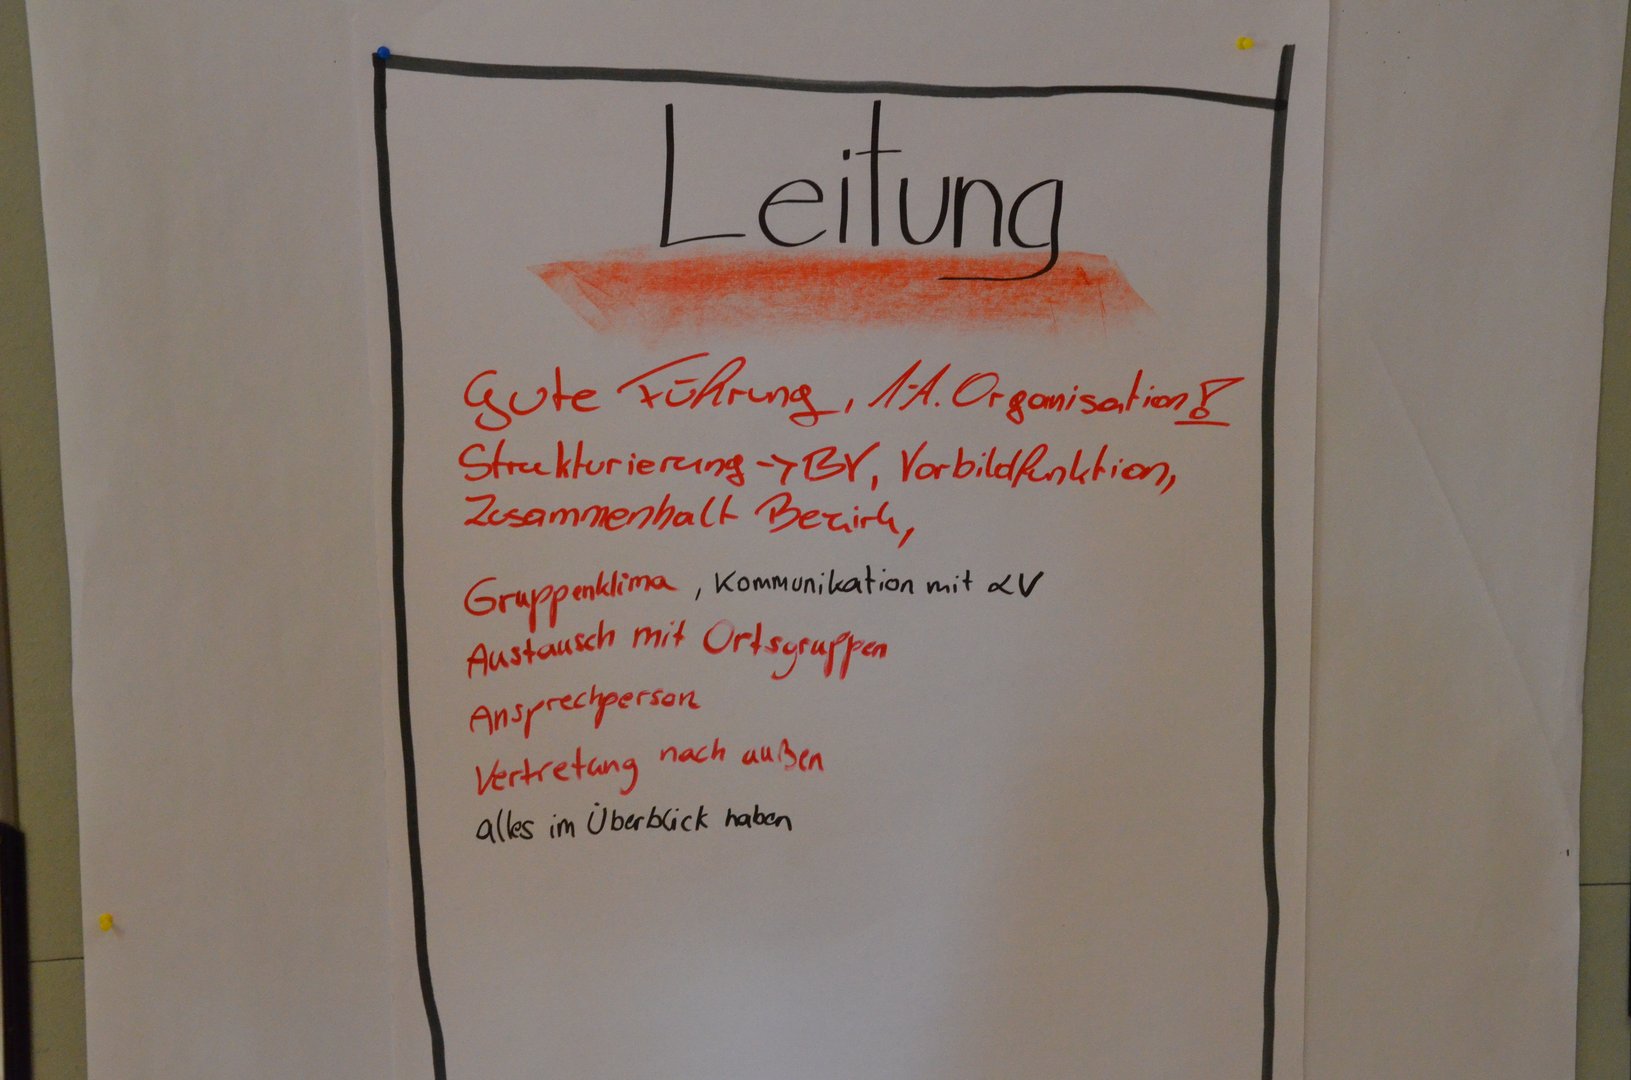 Leitung
Gute Führung, 1-A. Organisation!
Strukturierung → BV, Vorbildfunktion,
Zusammenhalt Bezirk,
Gruppenklima, Kommunikation mit LV
Austausch mit Ortsgruppen
Ansprechperson
Vertretung nach außen
alles im Überblick haben